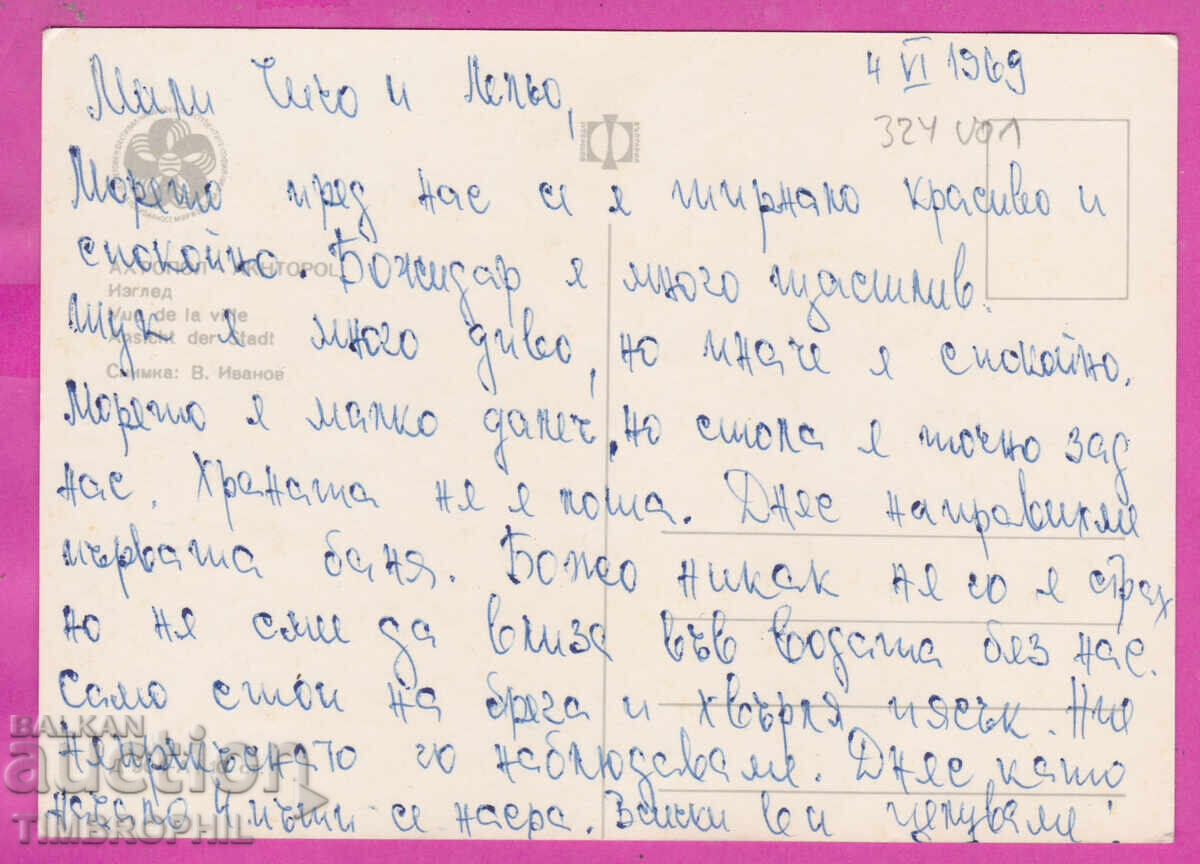 4 VI 1969
324 vол
Мили Чичо и Лельо,
Морето пред нас си я ширнало красиво и
спокойно. Божидар я много щастлив.
Тук я много диво, но иначе я спокойно.
Морето я малко далеч, но стола я точно зад
нас. Храната ня я лоша. Дняс направихме
първата баня. Божо никак ня го я страх
но ня смя да влиза във водата бяз нас.
Само стои на бряга и хвърля пясък. Ние
няпрякъснато го наблюдаваме. Дняс като
начало 4 пъти се насра. Всички ви цялувамя!
АХТОПОЛ AKHTOPOL
Изглед
Vue de la ville
Ansicht der Stadt
Снимка: В. Иванов
BALKAN
auction
TIMBROPHIL